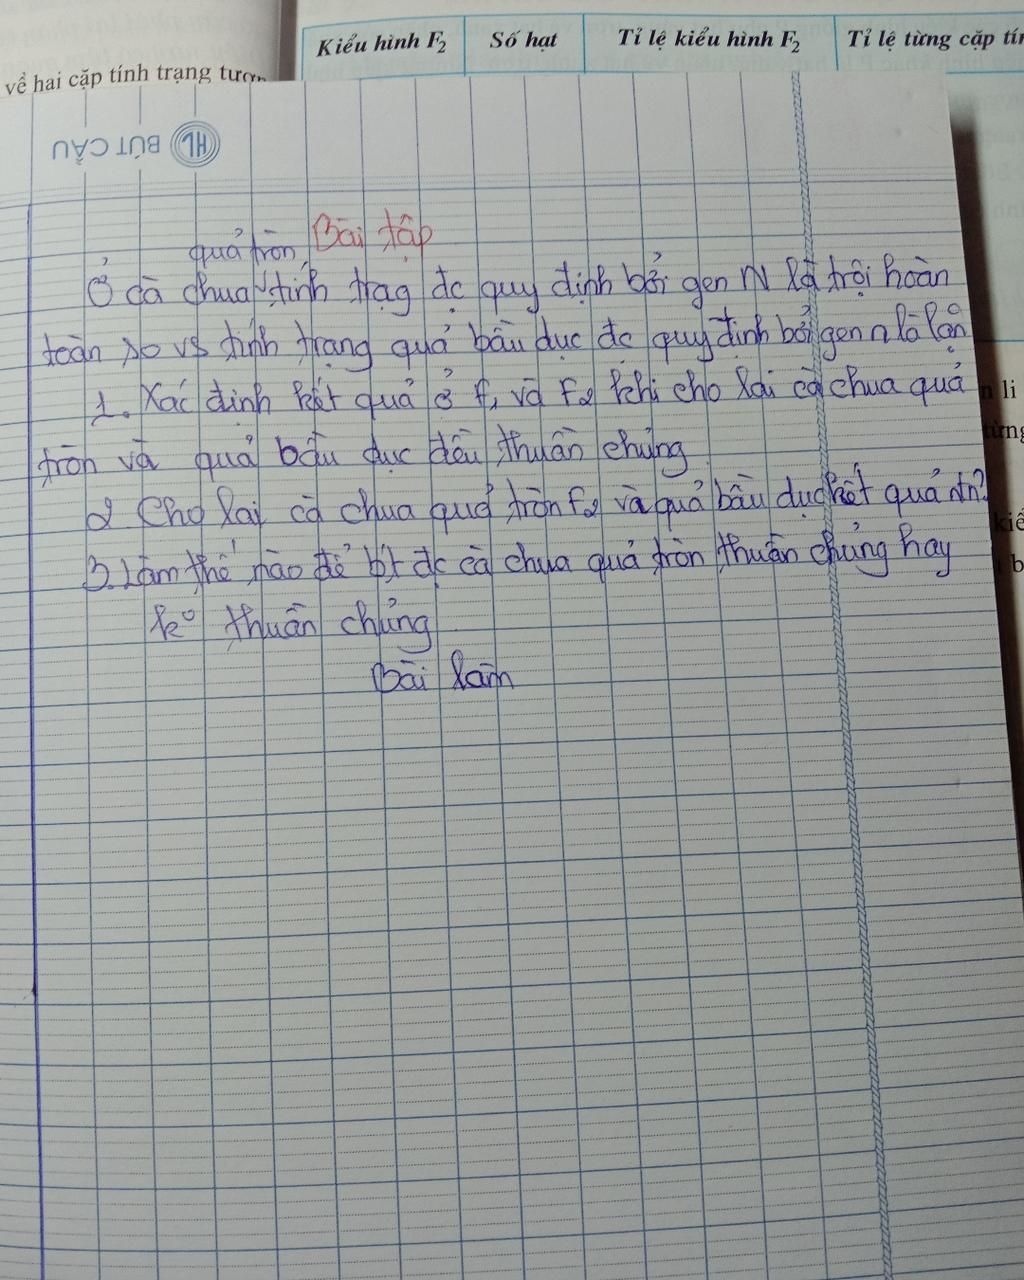 Kiểu hình F₂ Số hạt Tỉ lệ kiểu hình F₂ Tỉ lệ từng cặp tín
về hai cặp tính trạng tươn
HL BÚT CẦU
Bài tập
quả tròn,
Ở cà chua tính trạg đc quy định bởi gen N là trội hoàn
toàn so vs tính trạng quả bầu dục đc quy định bởi gen n là lặn
1. Xác định kết quả ở f₁ và F₂ khi cho lai cà chua quả
tròn và quả bầu dục đều thuần chủng
2 Cho lai cà chua quả tròn F₂ và quả bầu dục kết quả ntn?
3. Làm thế nào để bt đc cà chua quả tròn thuần chủng hay
k⁰ thuần chủng
Bài làm
n li
từng
kiể
b